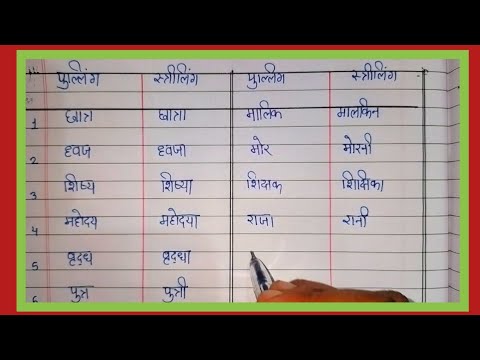 पुल्लिंग स्त्रीलिंग पुल्लिंग स्त्रीलिंग
1 छात्र छात्रा मालिक मालकिन
2 ध्वज ध्वजा मोर मोरनी
3 शिष्य शिष्या शिक्षक शिक्षिका
4 महोदय महोदया राजा रानी
5 वृद्ध वृद्धा
6 पुत्र पुत्री